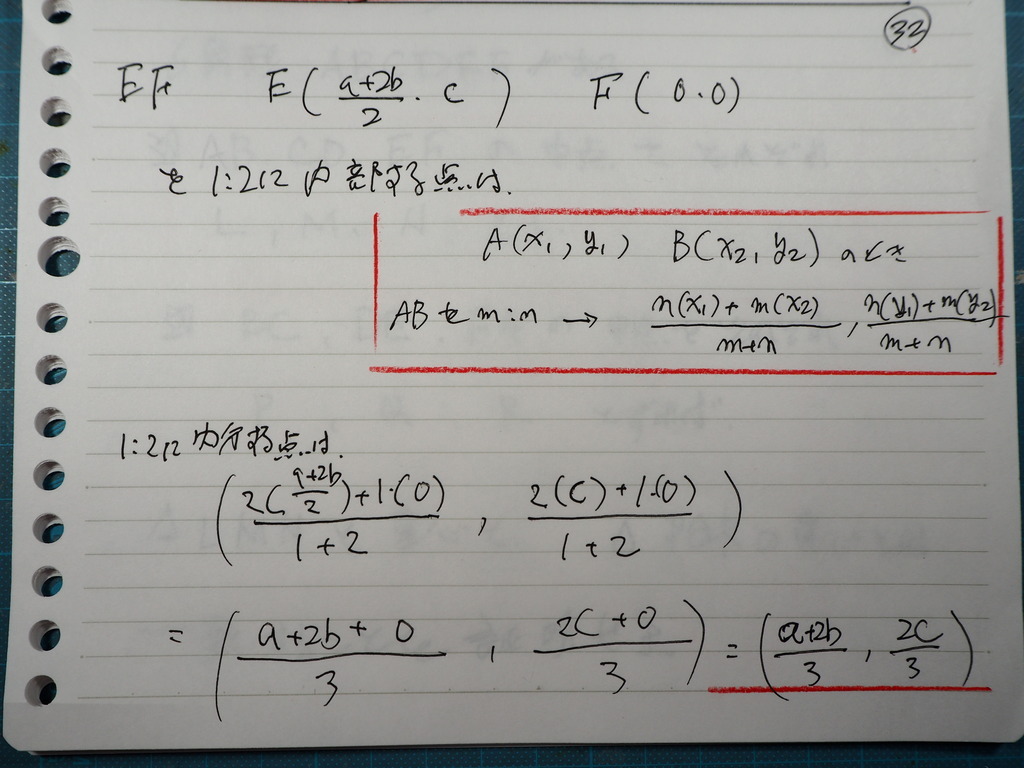 32
EF E(\frac{a+2b}{2}, c) F(0.0)
を1:2に内部する点は.
A(x₁, y₁) B(x₂, y₂) のとき
ABをm:n → \frac{n(x₁)+m(x₂)}{m+n}, \frac{n(y₁)+m(y₂)}{m+n}
1:2に内分する点は.
(\frac{2(\frac{a+2b}{2})+1·(0)}{1+2}, \frac{2(c)+1·(0)}{1+2})
= (\frac{a+2b+0}{3}, \frac{2c+0}{3}) = (\frac{a+2b}{3}, \frac{2c}{3})